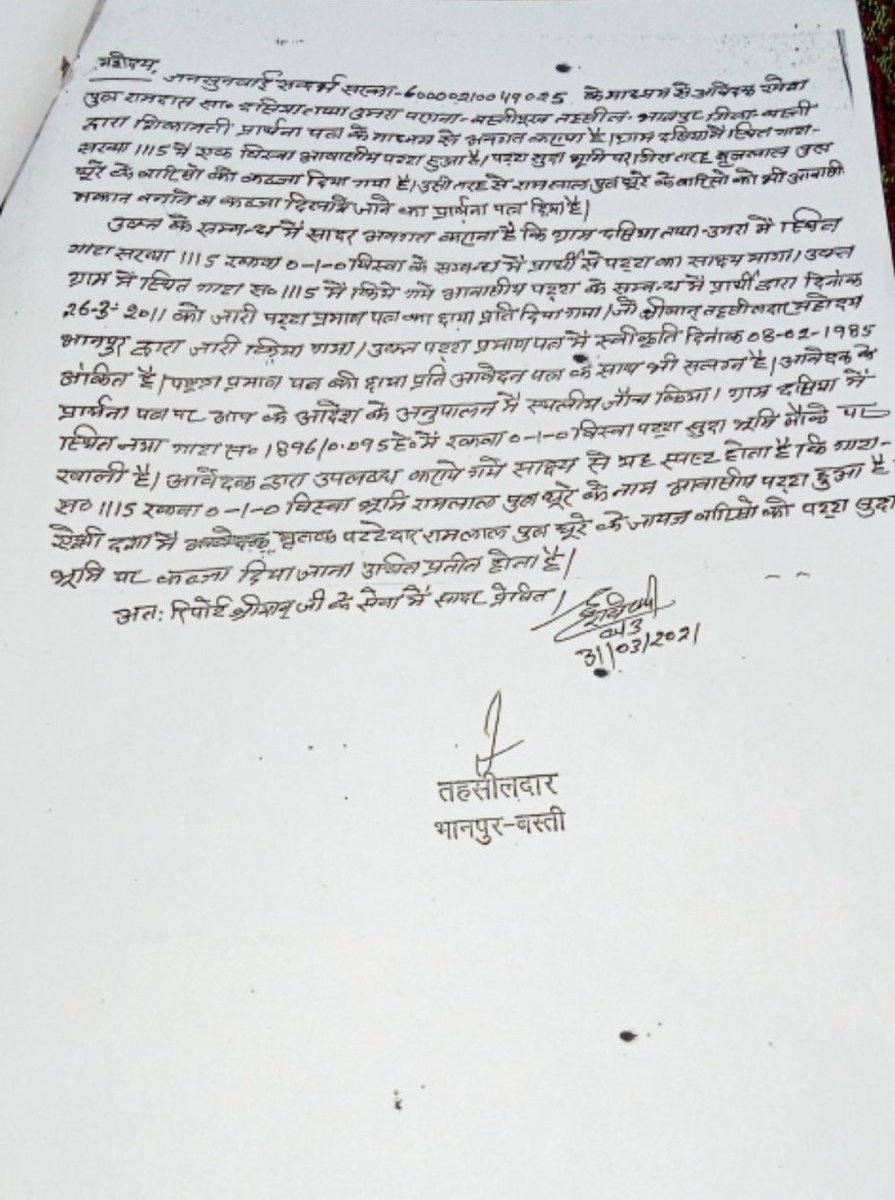 महोदय,
जनसुनवाई सन्दर्भ संख्या-60000210049025 के माध्यम से आवेदक
पुत्र रामदास सा० दसिया तप्पा उमरा परगना-बस्ती पूरब तहसील-भानपुर जिला-बस्ती
द्वारा शिकायती प्रार्थना पत्र के माध्यम से अवगत कराया है। ग्राम दसिया में स्थित गाटा-
संख्या 1115 में एक विस्वा आवासीय पट्टा हुआ है। पट्टा सुदा भूमि पर जिस तरह पुत्र
घूरे के वारिसो को कब्जा दिया गया है। उसी तरह से रामलाल पुत्र घूरे के वारिसो को भी आवासीय
मकान बनाने व कब्जा दिलाये जाने का प्रार्थना पत्र दिया है।
उक्त के सम्बन्ध में सादर अवगत कराना है कि ग्राम दसिया तप्पा-उमरा में स्थित
गाटा संख्या 1115 रकवा 0-1-0 विस्वा के सम्बन्ध में प्रार्थी से पट्टा का साक्ष्य मांगा। उक्त
ग्राम में स्थित गाटा सं० 1115 में किये गये आवासीय पट्टा के सम्बन्ध में प्रार्थी द्वारा दिनांक
26-3-2011 को जारी पट्टा प्रमाण पत्र का छाया प्रति दिया गया। जो श्रीमान् तहसीलदार महोदय
भानपुर द्वारा जारी किया गया। उक्त पट्टा प्रमाण पत्र में स्वीकृति दिनांक 08-02-1985
अंकित है। पट्टा प्रमाण पत्र की छाया प्रति आवेदन पत्र के साथ भी संलग्न है। आवेदक के
प्रार्थना पत्र पर आप के आदेश के अनुपालन में स्थलीय जाँच किया। ग्राम दसिया में
स्थित नया गाटा सं० 1896/0.095हे० में रकवा 0-1-0 विस्वा पट्टा सुदा भूमि मौके पर
खाली है। आवेदक द्वारा उपलब्ध कराये गये साक्ष्य से यह स्पष्ट होता है कि गाटा-
सं० 1115 रकवा 0-1-0 विस्वा भूमि रामलाल पुत्र घूरे के नाम आवासीय पट्टा हुआ है।
ऐसी दशा में मृतक पट्टेदार रामलाल पुत्र घूरे के जायज वारिसो को पट्टा सुदा
भूमि पर कब्जा दिया जाना उचित प्रतीत होता है।
अत: रिपोर्ट श्रीमान् जी के सेवा में सादर प्रेषित।
31/03/2021
तहसीलदार
भानपुर-बस्ती